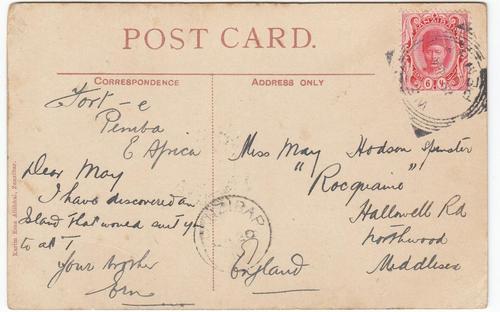 POST CARD.
CORRESPONDENCE
ADDRESS ONLY
Fort - e
Pemba
E Africa
Dear May
I have discovered an
Island that would suit you
to a T
Your brother
Ern
Miss May Hodson Spinster
"Rocquaine"
Hallowell Rd
Northwood
Middlesex
England
ZANZIBAR
ZANZIBAR
6